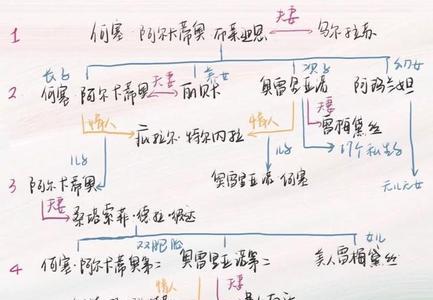 1 何塞·阿尔卡蒂奥·布恩迪亚 夫妻 乌尔拉苏
长子 养女 次子 幼女
2 何塞·阿尔卡蒂奥 夫妻 丽贝卡 奥雷里亚诺 阿玛兰妲
情人 情人 夫妻
庇拉尔·特尔内拉 雷梅黛丝
儿子 儿子 17个私生子
3 阿尔卡蒂奥 奥雷里亚诺·何塞 无儿无女
夫妻 桑塔索菲·德拉·
双胞胎 女儿
4 何塞·阿尔卡蒂奥第二 奥雷里亚诺第二 美人雷梅黛丝
情人 夫妻